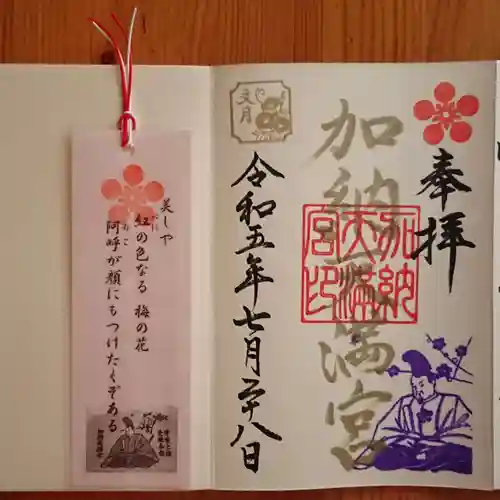 奉拝
加納天満宮
加納
天満
宮印
文月
令和五年七月二十八日
美しや
紅の色なる 梅の花
阿呼が顔にもつけたくぞある